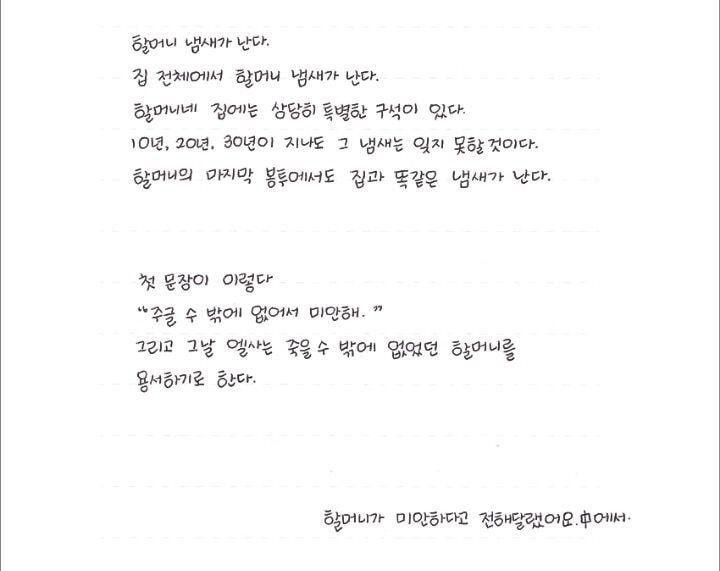 할머니 냄새가 난다.
집 전체에서 할머니 냄새가 난다.
할머니네 집에는 상당히 특별한 구석이 있다.
10년, 20년, 30년이 지나도 그 냄새는 잊지 못할것이다.
할머니의 마지막 봉투에서도 집과 똑같은 냄새가 난다.
첫 문장이 이렇다
"주글 수 밖에 없어서 미안해."
그리고 그날 엘사는 죽을 수 밖에 없었던 할머니를
용서하기로 한다.
할머니가 미안하다고 전해달랬어요.中에서.